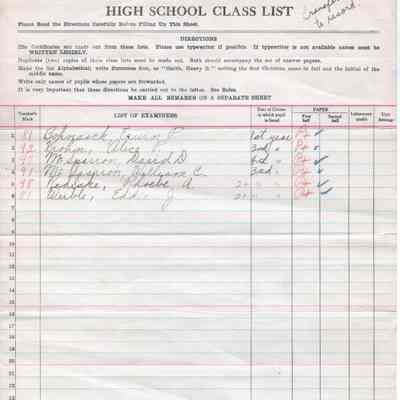 HIGH SCHOOL CLASS LIST
transfer
to record
Please Read the Directions Carefully Before Filling Up This Sheet.
DIRECTIONS
The Certificates are made out from these lists. Please use typewriter if possible. If typewriter is not available names must be
WRITTEN LEGIBLY.
Duplicates (two) copies of these class lists must be made out. Both should accompany the set of answer papers.
Make the list Alphabetical; write Surname first, as "Smith, Henry B." writing the first Christian name in full and the initial of the
middle name.
Write only names of pupils whose papers are forwarded.
It is very Important that these directions be carried out to the letter. See Rules.
MAKE ALL REMARKS ON A SEPARATE SHEET
Teacher's Mark
LIST OF EXAMINEES
Year of Course in which pupil is listed
PAPER
First half
Second half
Laboratory credit
Unit Average
1 81 Irwin P. 1st year
2 92 Krohn, Alice 3rd "
3 David D. 4th "
4 William C. 3rd "
5 98 Phoebe A. 2 "
6 81 Werble, J 2 "